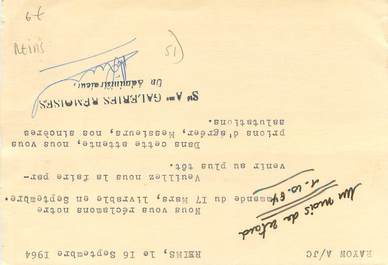 RAYON A/JC
REIMS, le 16 Septembre 1964
Nous vous réclamons notre
commande du 17 Mars, livrable en Septembre.
Veuillez nous la faire par-
venir au plus tôt.
Dans cette attente, nous vous
prions d'agréer, Messieurs, nos sincères
salutations.
Sté Ame GALERIES REMOISES
Un Administrateur,
Un mois de retard
REIMS
51)